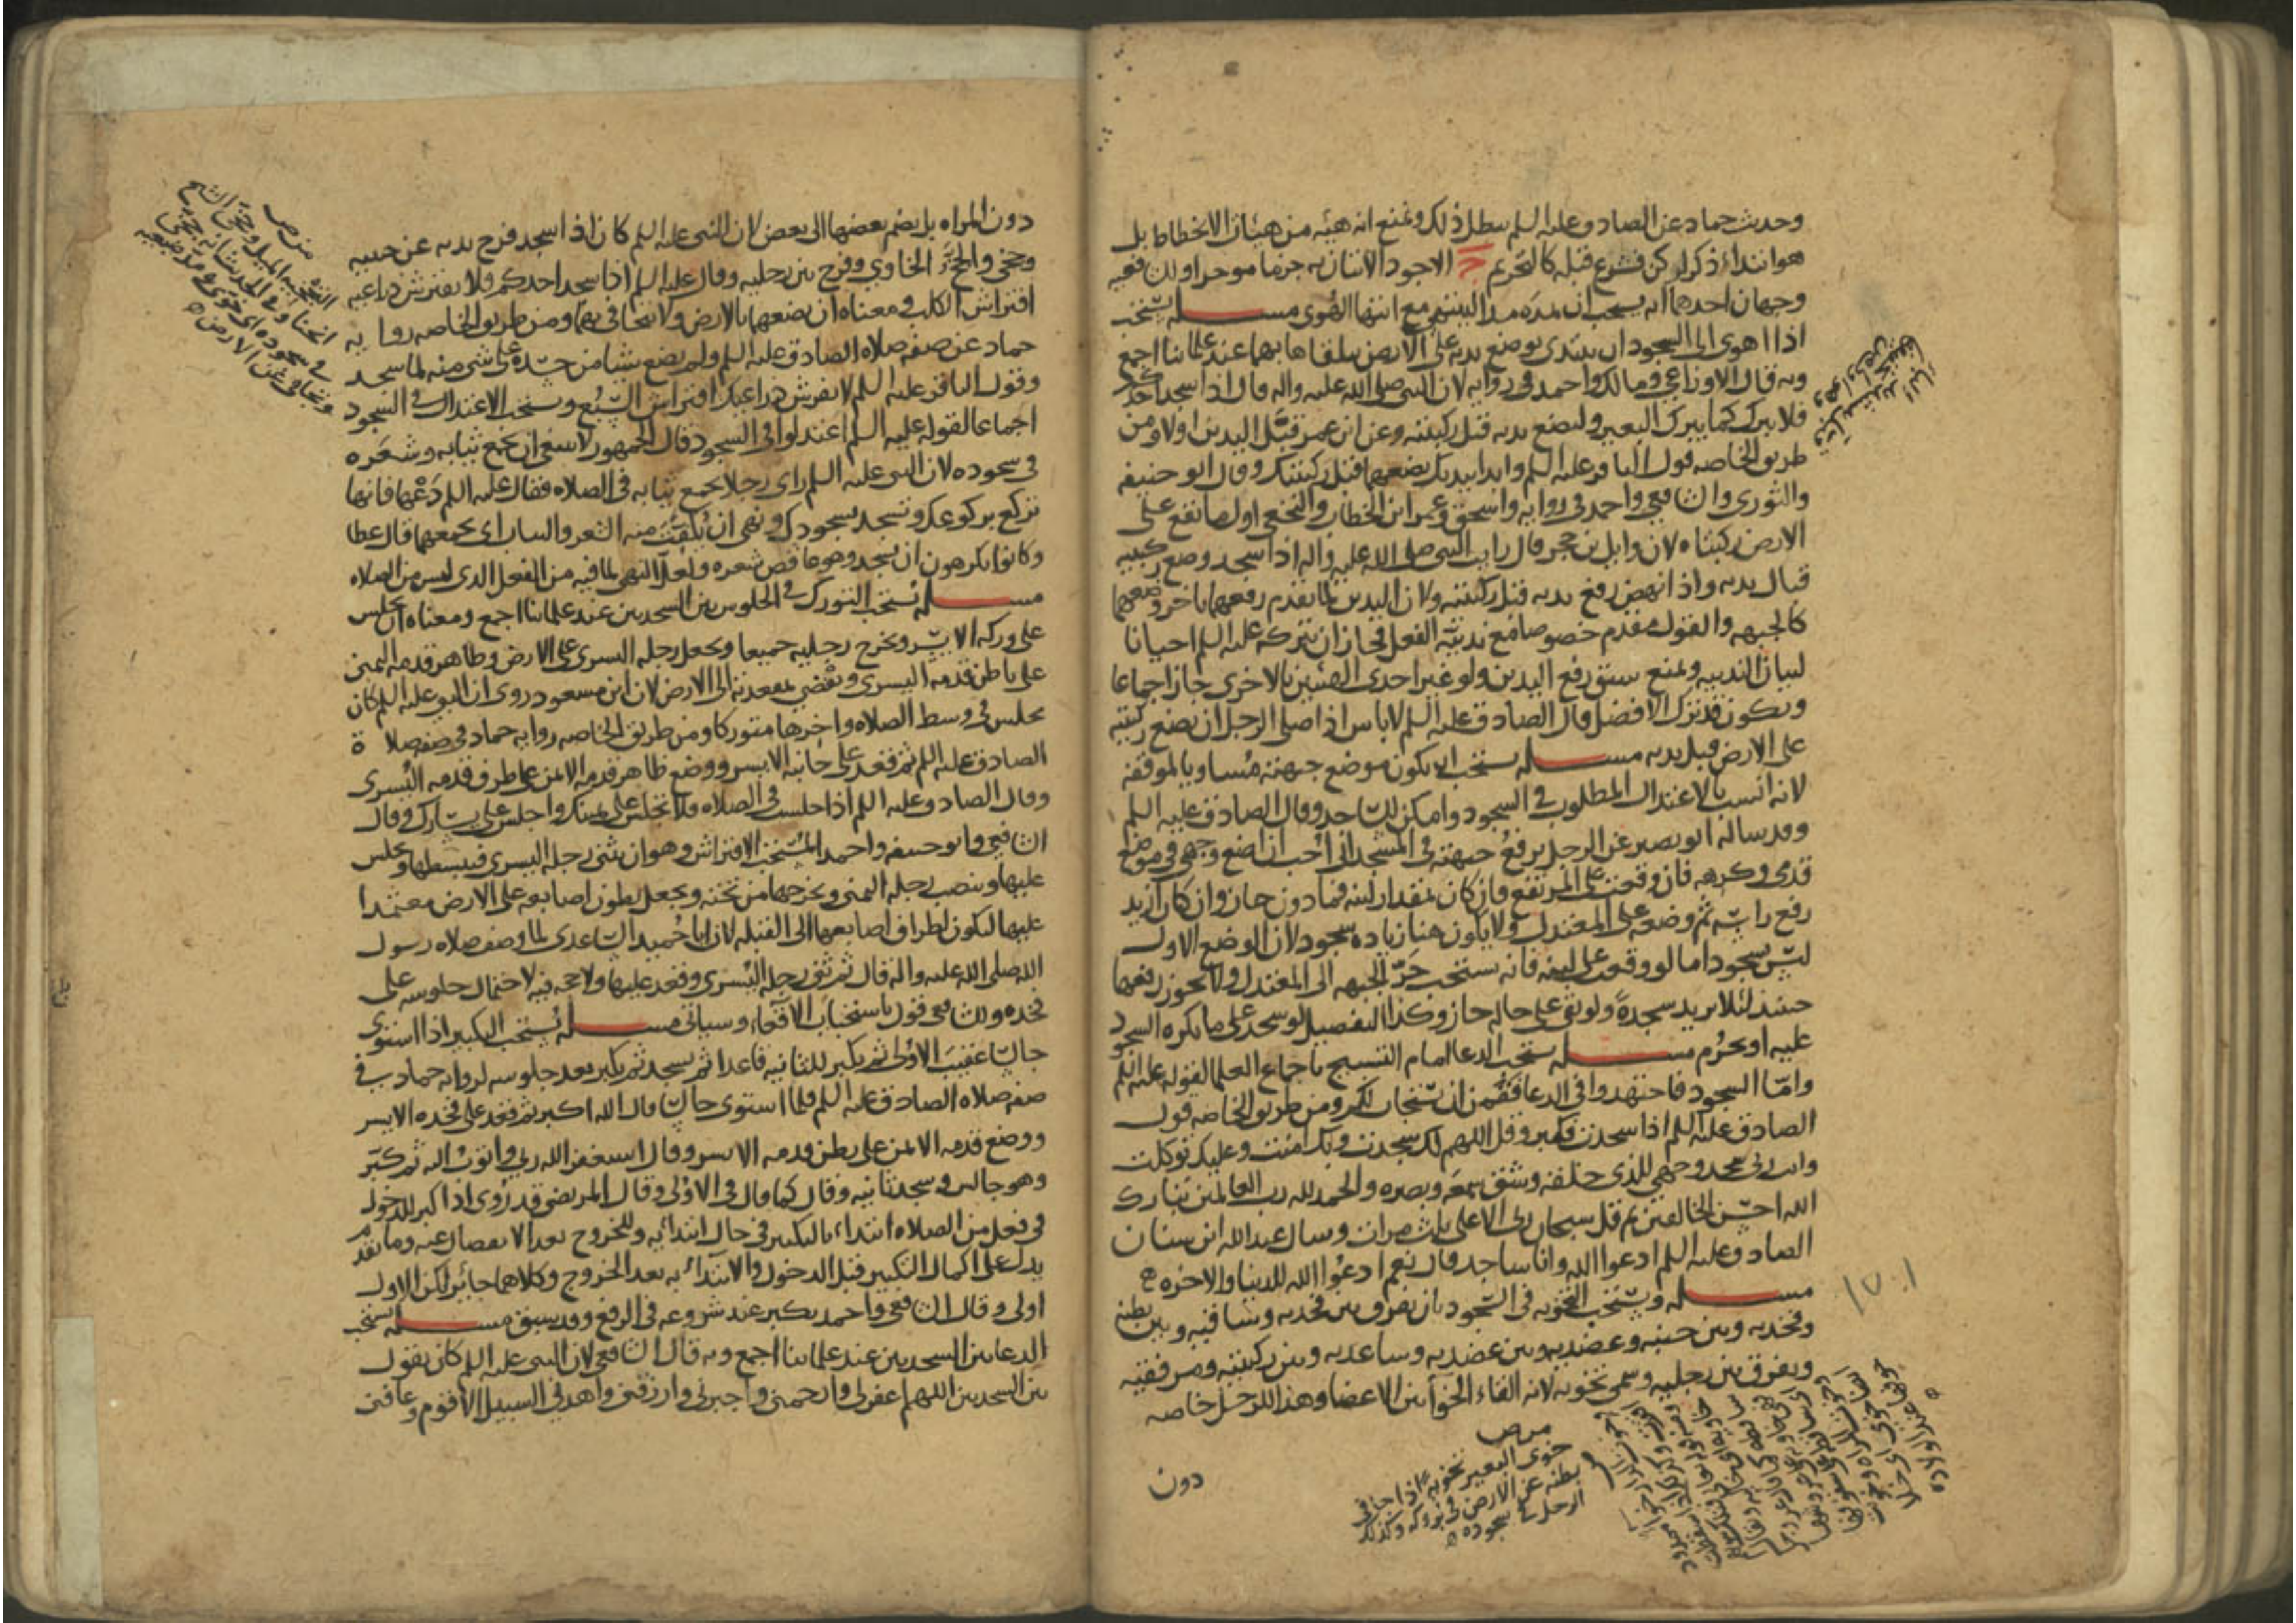 وحديث حماد عن الصادق عليه السلم يبطل ذلك ونمنع انه هيئه من هيئات الانحطاط بل
هو ابتداء ذكر لركن فشرع قبله كالتحريم الاجود الاتيان به جزما موجزا ولان فيه
وجهان احدهما انه يستحب ان يمده مد اليسير مع انتها الهوى مسله يستحب
اذا اهوى الى السجود ان يبتدى بوضع يديه على الارض يتلقاها بهما عند علمائنا اجمع
وبه قال الاوزاعي ومالك واحمد في روايه لان النبى صلى الله عليه واله قال اذا سجد احدكم
فلا يبرك كما يبرك البعير وليضع يديه قبل ركبتيه وعن ابن عمر قبل اليدين اولا ومن
طريق الخاصه قول الباقر عليه السلم وابدا بيديك تضعهما قبل ركبتيك وقال ابو حنيفه
والثورى والشافعي واحمد في روايه واسحق وعمر ابن الخطاب والنخعي اول ما تقع على
الارض ركبتاه لان وايل بن حجر قال رايت النبى صلى الله عليه واله اذا سجد وضع ركبتيه
قبل يديه واذا نهض رفع يديه قبل ركبتيه ولان اليدين لما تقدم رفعهما تاخر وضعهما
كالجبهه والقول مقدم خصوصا مع ندبية الفعل فجاز ان يتركه عليه السلم احيانا
لبيان الندبيه ونمنع سبق رفع اليدين ولو غير احدى الهيئتين بالاخرى جاز اجماعا
ويكون قد ترك الافضل قال الصادق عليه السلم لا باس اذا صلى الرجل ان يضع ركبتيه
على الارض قبل يديه مسله يستحب ان يكون موضع جبهته مساويا لموقفه
لانه انسب بالاعتدال المطلوب في السجود وامكن للساجد وقال الصادق عليه السلم
وقد ساله ابو بصير عن الرجل يرفع جبهته في المسجد انى احب ان اضع وجهى في موضع
قدمى وكرهه فان وقعت على المرتفع فان كان بمقدار لبنه فما دون جاز وان كان ازيد
رفع راسه ثم وضعه على المعتدل ولا يكون هنا زياده سجود لان الوضع الاول
ليس بسجود اما لو وقعت على لبنه فانه يستحب جر الجبهه الى المعتدل ولا يجوز رفعها
حينئذ لئلا يزيد سجدة ولو بقى على حاله جاز وكذا التفصيل لو سجد على ما يكره السجود
عليه او يحرم مسله يستحب الدعا امام التسبيح باجماع العلما لقوله عليه السلم
واما السجود فاجتهدوا في الدعا فقمن ان يستجاب لكم ومن طريق الخاصه قول
الصادق عليه السلم اذا سجدت فكبر وقل اللهم لك سجدت وبك امنت وعليك توكلت
وانت ربى سجد وجهي للذى خلقه وشق سمعه وبصره والحمد لله رب العالمين تبارك
الله احسن الخالقين ثم قل سبحان ربى الاعلى ثلث مرات وسال عبدالله ابن سنان
الصادق عليه السلم ادعوا الله وانا ساجد قال نعم ادعوا الله للدنيا والاخره
مسله ويستحب التخويه في السجود بان يفرق بين فخذيه وساقيه وبين بطنه
وفخذيه وبين جنبيه وعضديه وبين عضديه وساعديه وبين ركبتيه ومرفقيه
ويفرق بين رجليه وسمى تخويه لانه القاء الخوآ بين الاعضا وهذا للرجل خاصه
دون
من ص
خوى البعير تخوية اذا جافى
بطنه عن الارض في بروكه وكذلك
الرجل في سجوده
١٧٠١
دون المراه بل يضم بعضها الى بعض لان النبى عليه السلم كان اذا سجد فرج يديه عن جنبيه
وجخى والجخ الخاوي وفرج بين رجليه وقال عليه السلم اذا سجد احدكم فلا يفترش ذراعيه
افتراش الكلب ومعناه ان يضعهما بالارض ولا يتجافى بهما ومن طريق الخاصه روايه
حماد عن صفه صلاه الصادق عليه السلم ولم يضع شيا من جسده على شى منه لما سجد
وقول الباقر عليه السلم لا تفرش ذراعيك افتراش السبع ويستحب الاعتدال في السجود
اجماعا لقوله عليه السلم اعتدلوا في السجود قال الجمهور لا ينبغي ان يجمع ثيابه وشعره
في سجوده لان النبى عليه السلم راى رجلا يجمع ثيابه في الصلاه فقال عليه السلم دعها فانها
تركع بركوعك وتسجد بسجودك ونهى ان يكفت منه الشعر والثياب اى يجمعهما قال عطا
وكانوا يكرهون ان يسجد وهو عاقص شعره ولعل النهى لما فيه من الفعل الذى ليس من الصلاه
مسله يستحب التورك في الجلوس بين السجدتين عند علمائنا اجمع ومعناه ان يجلس
على وركه الايسر ويخرج رجليه جميعا ويجعل رجله اليسرى على الارض وظاهر قدمه اليمنى
على باطن قدمه اليسرى ويفضي بمقعدته الى الارض لان ابن مسعود روى ان النبى عليه السلم كان
يجلس في وسط الصلاه واخرها متوركا ومن طريق الخاصه روايه حماد في صفه صلاة
الصادق عليه السلم ثم قعد على جانبه الايسر ووضع ظاهر قدمه الايمن على باطن قدمه اليسرى
وقال الصادق عليه السلم اذا جلست في الصلاه فلا تجلس على يمينك واجلس على يسارك وقال
الشافعي وابو حنيفه واحمد المستحب الافتراش وهو ان يثنى رجله اليسرى فيبسطها ويجلس
عليها وينصب رجله اليمنى ويخرجها من تحته ويجعل بطون اصابعه على الارض معتمدا
عليها لتكون اطراف اصابعها الى القبله لان ابا حميد الساعدى لما وصف صلاه رسول
الله صلى الله عليه واله قال ثم ثنى رجله اليسرى وقعد عليها ولا حجه فيه لاحتمال جلوسه على
فخذه وللشافعى قول باستحباب الاقعاء وسياتى مسله يستحب التكبير اذا استوى
جالسا عقيب الاولى ثم يكبر للثانيه قاعدا ثم يسجد ثم يكبر بعد جلوسه لروايه حماد في
صفه صلاه الصادق عليه السلم فلما استوى جالسا قال الله اكبر ثم قعد على فخذه الايسر
ووضع قدمه الايمن على بطن قدمه الايسر وقال استغفر الله ربي واتوب اليه ثم كبر
وهو جالس وسجد ثانيه وقال كما قال في الاولى وقال المرتضى قد روى اذا كبر للدخول
في فعل من الصلاه ابتداء بالتكبير في حال ابتدائه وللخروج بعد الانفصال عنه وما تقدم
يدل على اكمال التكبير قبل الدخول والابتداء به بعد الخروج وكلاهما جائز لكن الاول
اولى وقال الشافعى واحمد يكبر عند شروعه في الرفع وقد سبق مسله يستحب
الدعا بين السجدتين عند علمائنا اجمع وبه قال الشافعى لان النبى عليه السلم كان يقول
بين السجدتين اللهم اغفر لى وارحمنى واجبرنى وارزقنى واهدنى السبيل الاقوم وعافنى
من ص